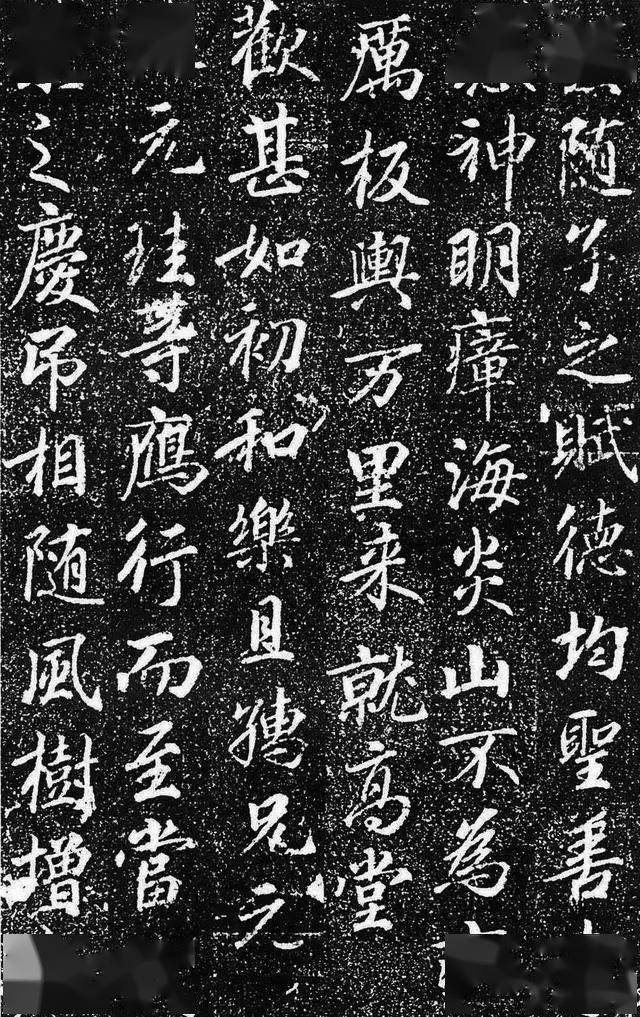 随子之賦德均聖善
神明瘴海炎山不為
厲板輿万里来就高堂
歡甚如初和樂且孺兄元
元珪等鴈行而至當
之慶吊相随風樹增